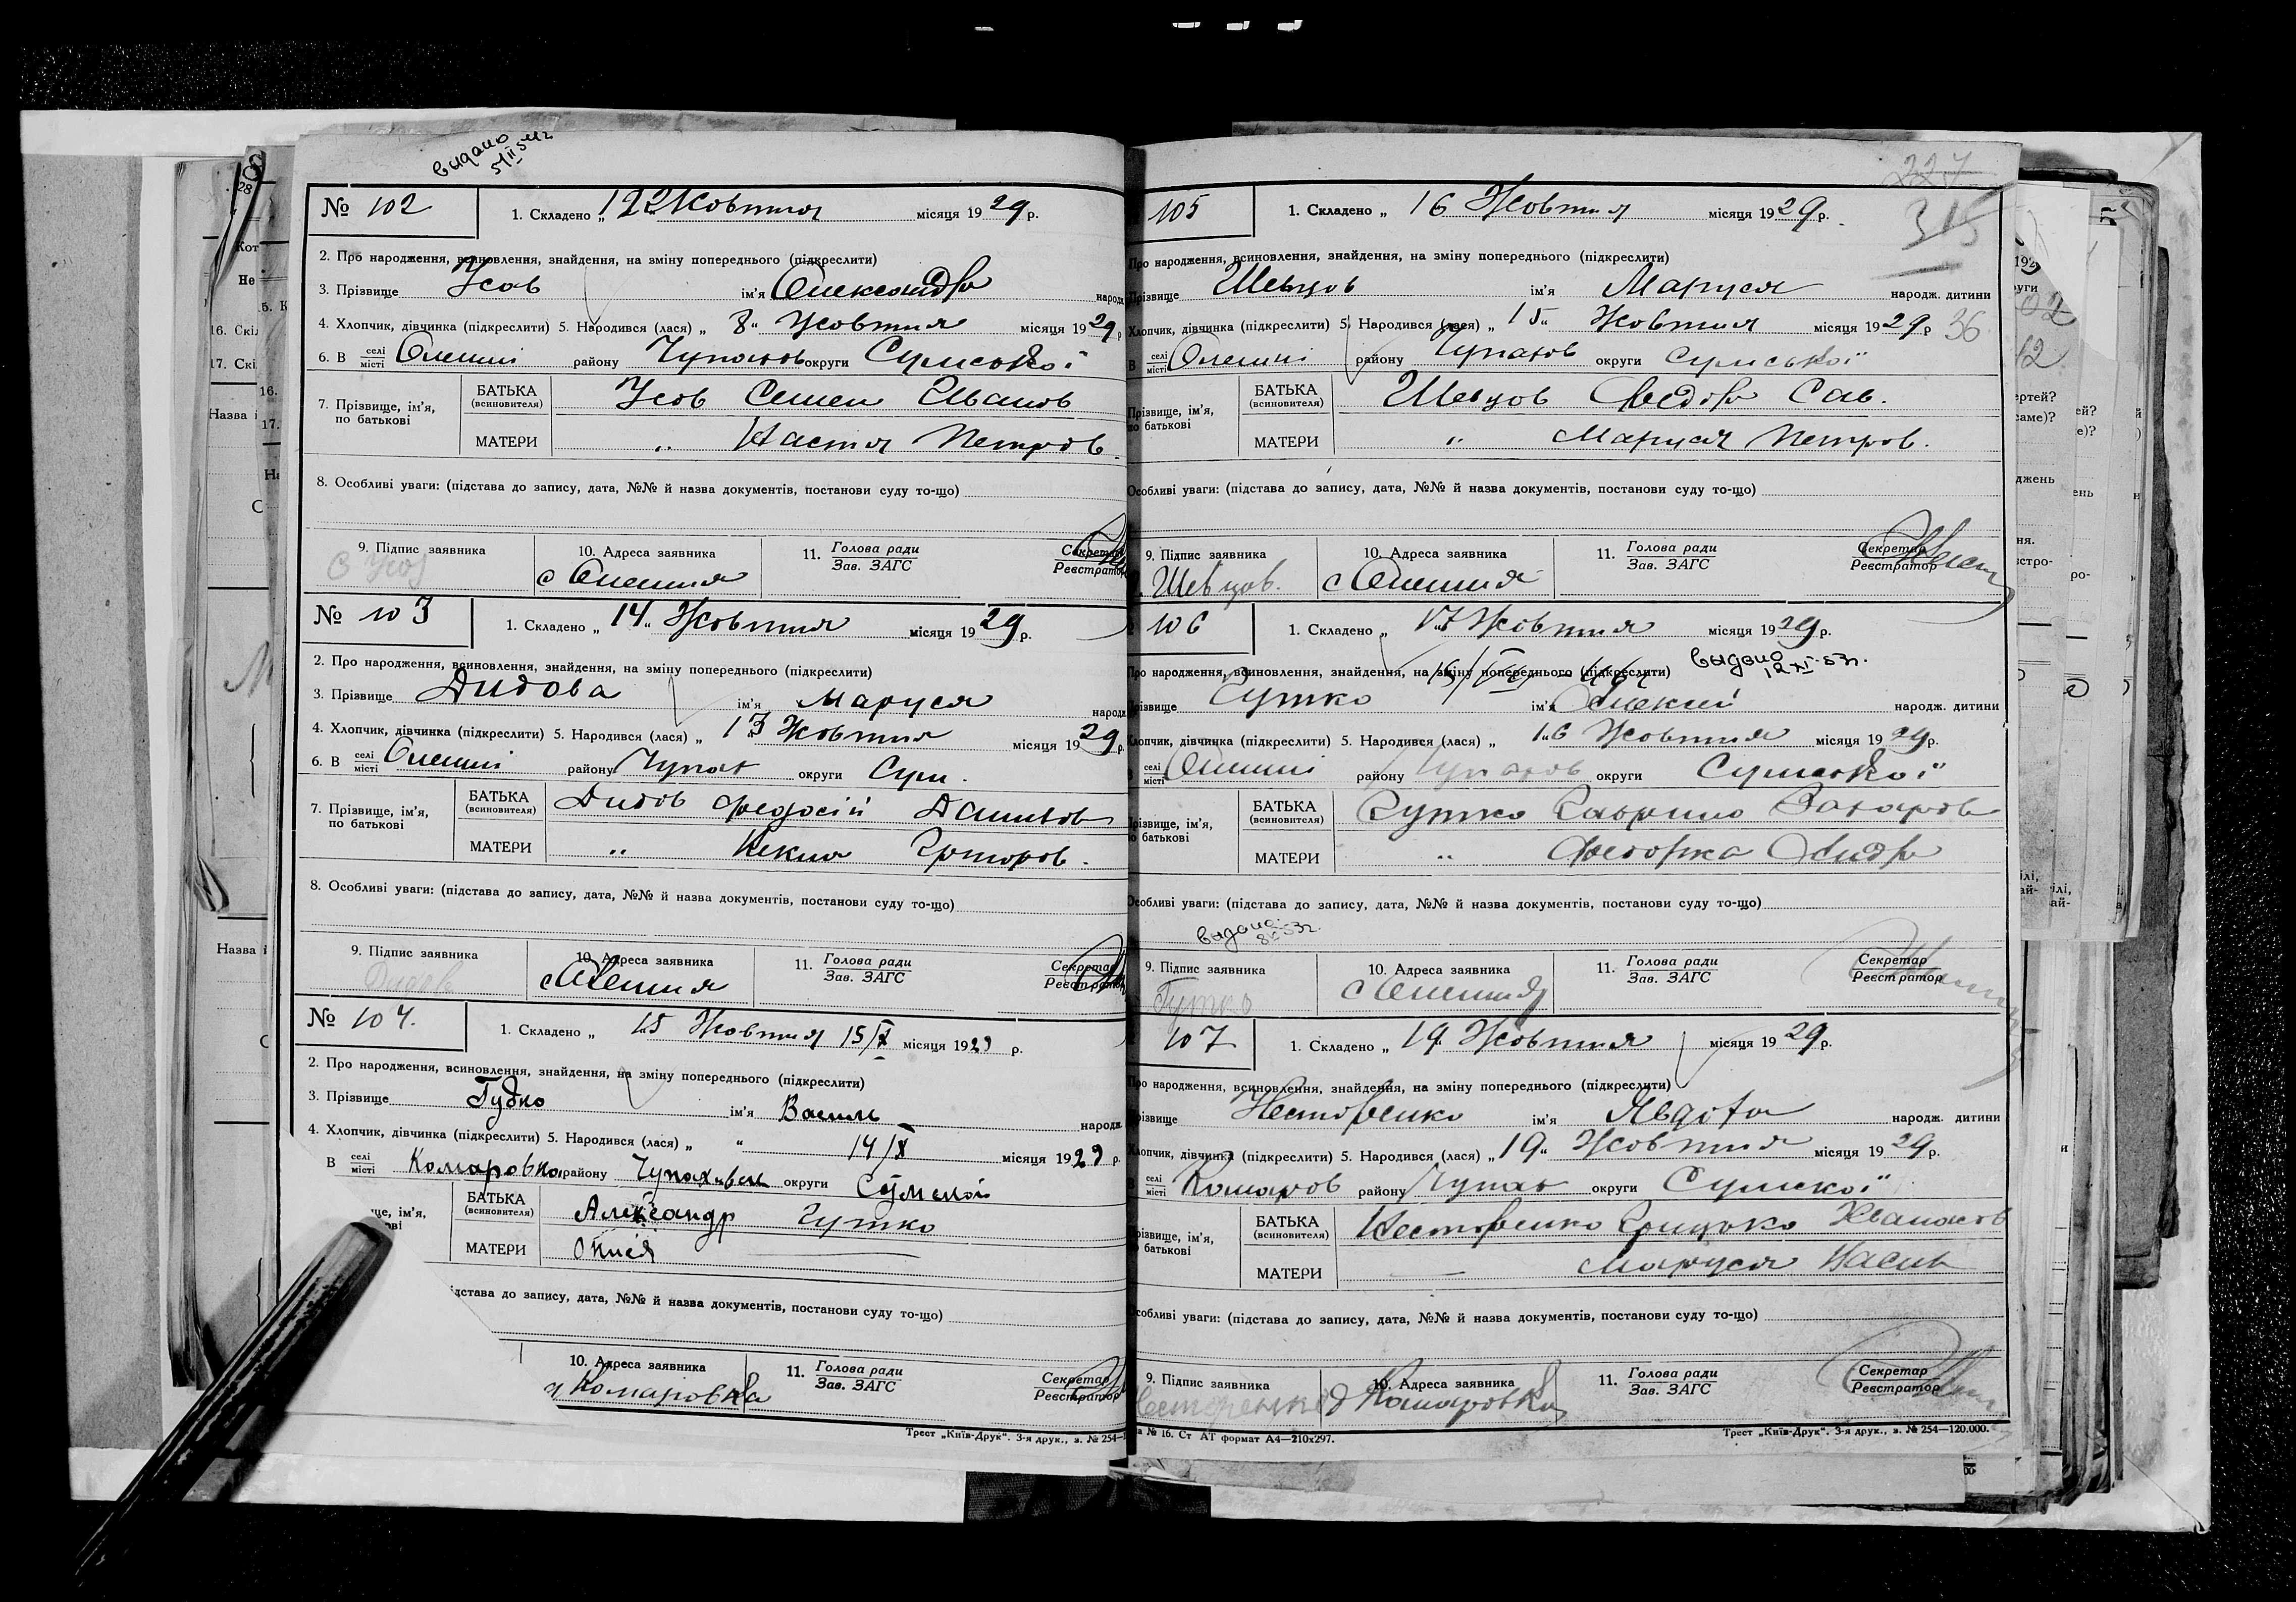 видано
5/II 54 г
№ 102
1. Складено „ 12 " Жовтня місяця 19 29 р.
2. Про народження, всиновлення, знайдення, на зміну попереднього (підкреслити)
3. Прізвище Усов ім'я Олександр народж
4. Хлопчик, дівчинка (підкреслити) 5. Народився (лася) „ 8 " Жовтня місяця 19 29 р
6. В селі місті Олешні району Чупахов округи Сумської
7. Прізвище, ім'я, по батькові
БАТЬКА (всиновителя) Усов Семен Иванов
МАТЕРИ „ Настя Петров.
8. Особливі уваги: (підстава до запису, дата, №№ й назва документів, постанови суду то-що)
9. Підпис заявника 10. Адреса заявника 11. Голова ради Зав. ЗАГС Секретар Реєстратор
С Усов с Олешня
№ 103
1. Складено „ 14 " Жовтня місяця 19 29 р.
2. Про народження, всиновлення, знайдення, на зміну попереднього (підкреслити)
3. Прізвище Дидова ім'я Маруся народж
4. Хлопчик, дівчинка (підкреслити) 5. Народився (лася) „ 13 Жовтня місяця 19 29 р.
6. В селі місті Олешні району Чупах округи Сум.
7. Прізвище, ім'я, по батькові
БАТЬКА (всиновителя) Дидов Федосій Данилов
МАТЕРИ „ Векла Григоров.
8. Особливі уваги: (підстава до запису, дата, №№ й назва документів, постанови суду то-що)
9. Підпис заявника 10. Адреса заявника 11. Голова ради Зав. ЗАГС Секретар Реєстратор
Дидов с Олешня
№ 104.
1. Складено „ 15 Жовтня 15/X місяця 19 29 р.
2. Про народження, всиновлення, знайдення, на зміну попереднього (підкреслити)
3. Прізвище Гудко ім'я Василь народж
4. Хлопчик, дівчинка (підкреслити) 5. Народився (лася) „ " 14/X місяця 19 29 р.
В селі місті Комаровка району округи Сумской
ще, ім'я,
ові
БАТЬКА (всиновителя) Александр Гутко
МАТЕРИ
ідстава до запису, дата, №№ й назва документів, постанови суду то-що)
10. Адреса заявника 11. Голова ради Зав. ЗАГС Секретар Реєстратор
Комаровка
Трест „Київ-Друк". 3-я друк., з. № 254—1
227
315
105
1. Складено „ 16 Жовтня місяця 19 29 р.
Про народження, всиновлення, знайдення, на зміну попереднього (підкреслити)
Прізвище Шевцов ім'я Маруся народж. дитини
Хлопчик, дівчинка (підкреслити) 5. Народився (лася) „ 15 " Жовтня місяця 19 29 р 36
В селі місті Олешні району Чупахов округи Сумської
Прізвище, ім'я, по батькові
БАТЬКА (всиновителя) Шевцов Федор Сав.
МАТЕРИ „ Маруся Петров.
Особливі уваги: (підстава до запису, дата, №№ й назва документів, постанови суду то-що)
9. Підпис заявника 10. Адреса заявника 11. Голова ради Зав. ЗАГС Секретар Реєстратор
Шевцов. с Олешня
106
1. Складено „ 17 Жовтня місяця 19 29 р.
Про народження, всиновлення, знайдення, на зміну попереднього (підкреслити)
видано
12 XI-53 г.
Прізвище Гутко ім'я Олексій народж. дитини
Хлопчик, дівчинка (підкреслити) 5. Народився (лася) „ 16 Жовтня місяця 19 29 р.
В селі місті Олешні району Чупахов округи Сумської
Прізвище, ім'я, по батькові
БАТЬКА (всиновителя) Гутко Гаврило Захаров
МАТЕРИ „ Федорка
Особливі уваги: (підстава до запису, дата, №№ й назва документів, постанови суду то-що)
видано
9. Підпис заявника 10. Адреса заявника 11. Голова ради Зав. ЗАГС Секретар Реєстратор
Гутко с Олешня
107
1. Складено „ 19 Жовтня місяця 19 29 р.
Про народження, всиновлення, знайдення, на зміну попереднього (підкреслити)
Прізвище Несторенко ім'я Явдоха народж. дитини
Хлопчик, дівчинка (підкреслити) 5. Народився (лася) „ 19 " Жовтня місяця 19 29 р.
В селі місті Комаров району Чупах округи Сумскої
Прізвище, ім'я, по батькові
БАТЬКА (всиновителя) Несторенко Грицько
МАТЕРИ — Маруся
Особливі уваги: (підстава до запису, дата, №№ й назва документів, постанови суду то-що)
9. Підпис заявника 10. Адреса заявника 11. Голова ради Зав. ЗАГС Секретар Реєстратор
Несторенко Комаровка
а № 16. Ст АТ формат А4—210х297.
Трест „Київ-Друк". 3-я друк., з. № 254—120.000.